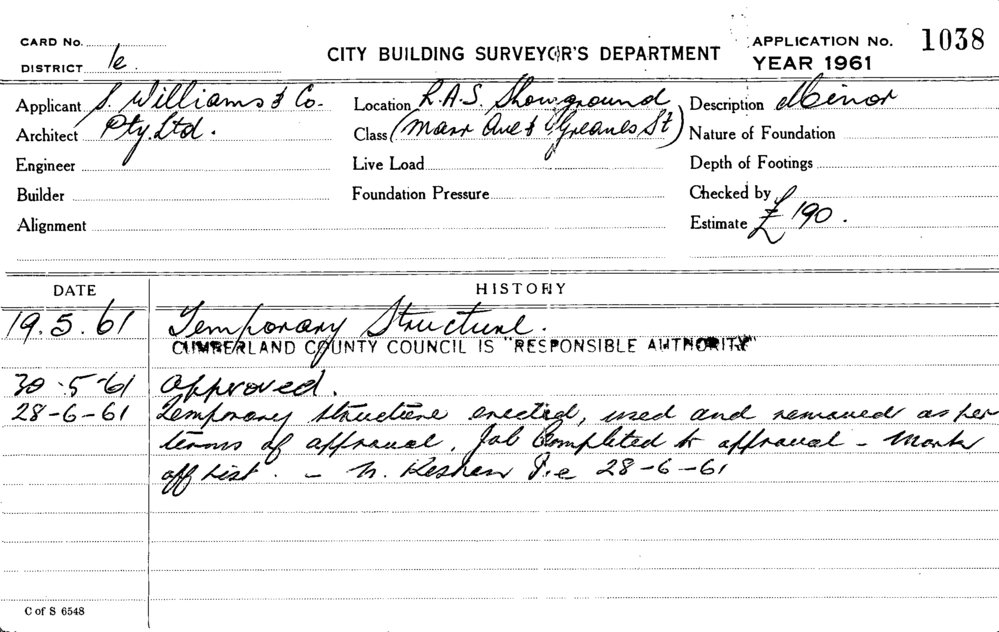 CARD No.
DISTRICT 1e
CITY BUILDING SURVEYOR'S DEPARTMENT
APPLICATION No. 1038
YEAR 1961
Applicant S. Williams & Co.
Architect Pty. Ltd.
Engineer
Builder
Alignment
Location R.A.S. Showground
Class (Marr Ave & Greanes St)
Live Load
Foundation Pressure
Description Minor
Nature of Foundation
Depth of Footings
Checked by
Estimate £190.
DATE HISTORY
19.5.61 Temporary Structure.
CUMBERLAND COUNTY COUNCIL IS "RESPONSIBLE AUTHORITY"
30-5-61 Approved.
28-6-61 Temporary structure erected, used and removed as per
terms of approval. Job Completed to approval - Mark
off List. - 28-6-61
C of S 6548